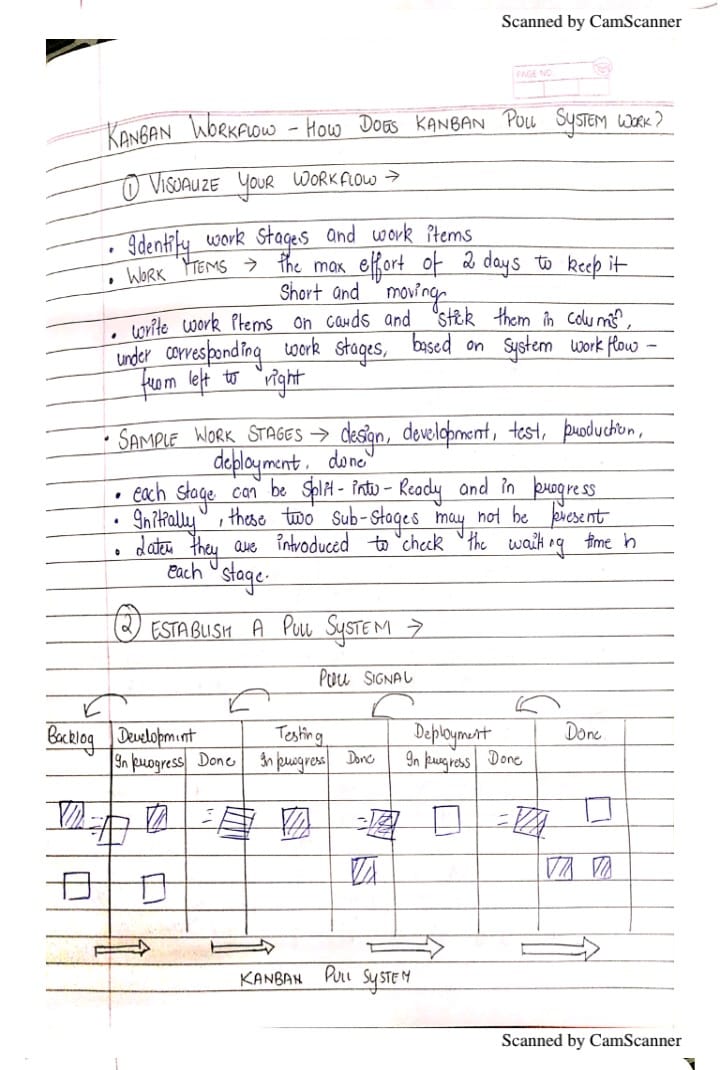 Scanned by CamScanner
PAGE NO.
KANBAN WORKFLOW - HOW DOES KANBAN PULL SYSTEM WORK?
① VISUALIZE YOUR WORKFLOW →
• Identify work stages and work items
• WORK ITEMS → the max effort of 2 days to keep it
short and moving
• write work items on cards and stick them in colums,
under corresponding work stages, based on system workflow -
from left to right
• SAMPLE WORK STAGES → design, development, test, production,
deployment, done
• each stage can be split-into-Ready and in progress
• Initially, these two sub-stages may not be present
• later they are introduced to check the waiting time in
each stage.
② ESTABLISH A PULL SYSTEM →
PULL SIGNAL
Backlog Development Testing Deployment Done
In progress Done In progress Done In progress Done
KANBAN PULL SYSTEM
Scanned by CamScanner